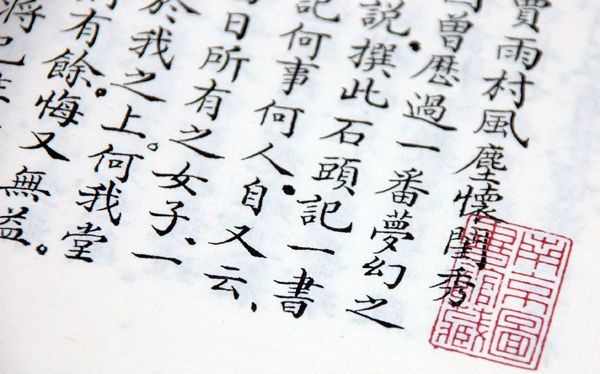 賈雨村風塵懷閨秀
曾歷過一番夢幻之
說.撰此石頭記一書
記何事何人.自又云、
日所有之女子、一
於我之上。何我堂
有餘。悔又無益。
將已
南京圖
書館藏